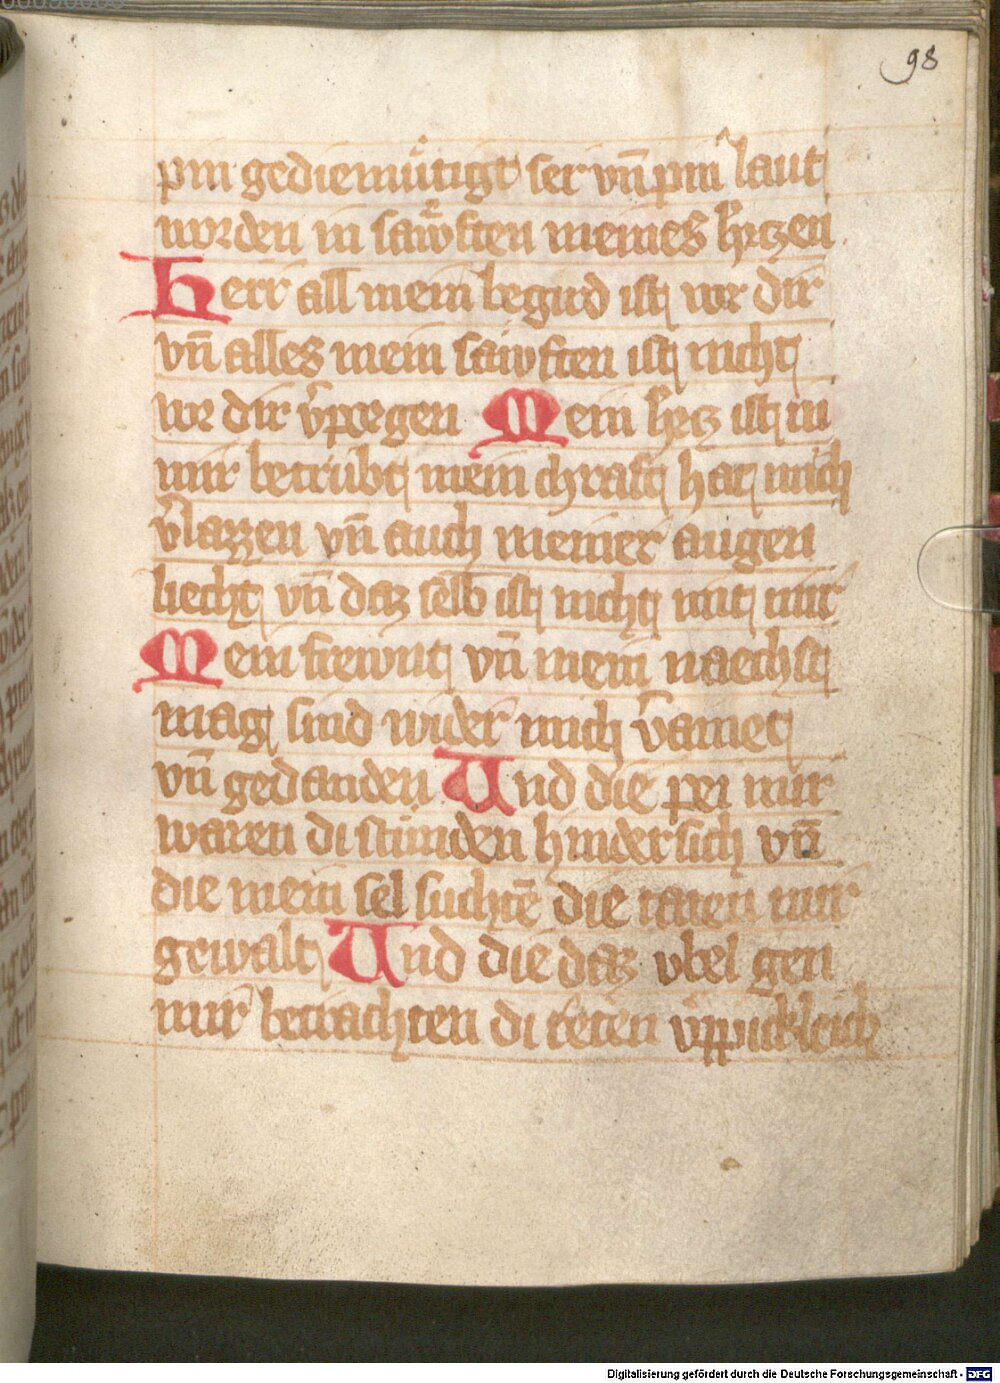 98
pin gediemuͤtigt ser vn̄ pin laut
worden in sawͤften meines h̾rczen
Herr all mein begird ist vor dir
vn̄ alles mein sawften ist nicht
vor dir v̾porgen Mein h̾rcz ist in
mir betrübt mein chraft hat mich
v̾lazzen vn̄ auch meiner augen
liecht vn̄ daz selb ist nicht mit mir
Mein frewnt vn̄ mein naechst
mag sind wider mich
vn̄ Und die pei mir
waren di stunden hindersich vn̄
die mein sel suchtē die taten mir
gewalt Und die daz vbel gen
mir betrachten di reten v̾ppickleich
Digitalisierung gefördert durch die Deutsche Forschungsgemeinschaft - DFG